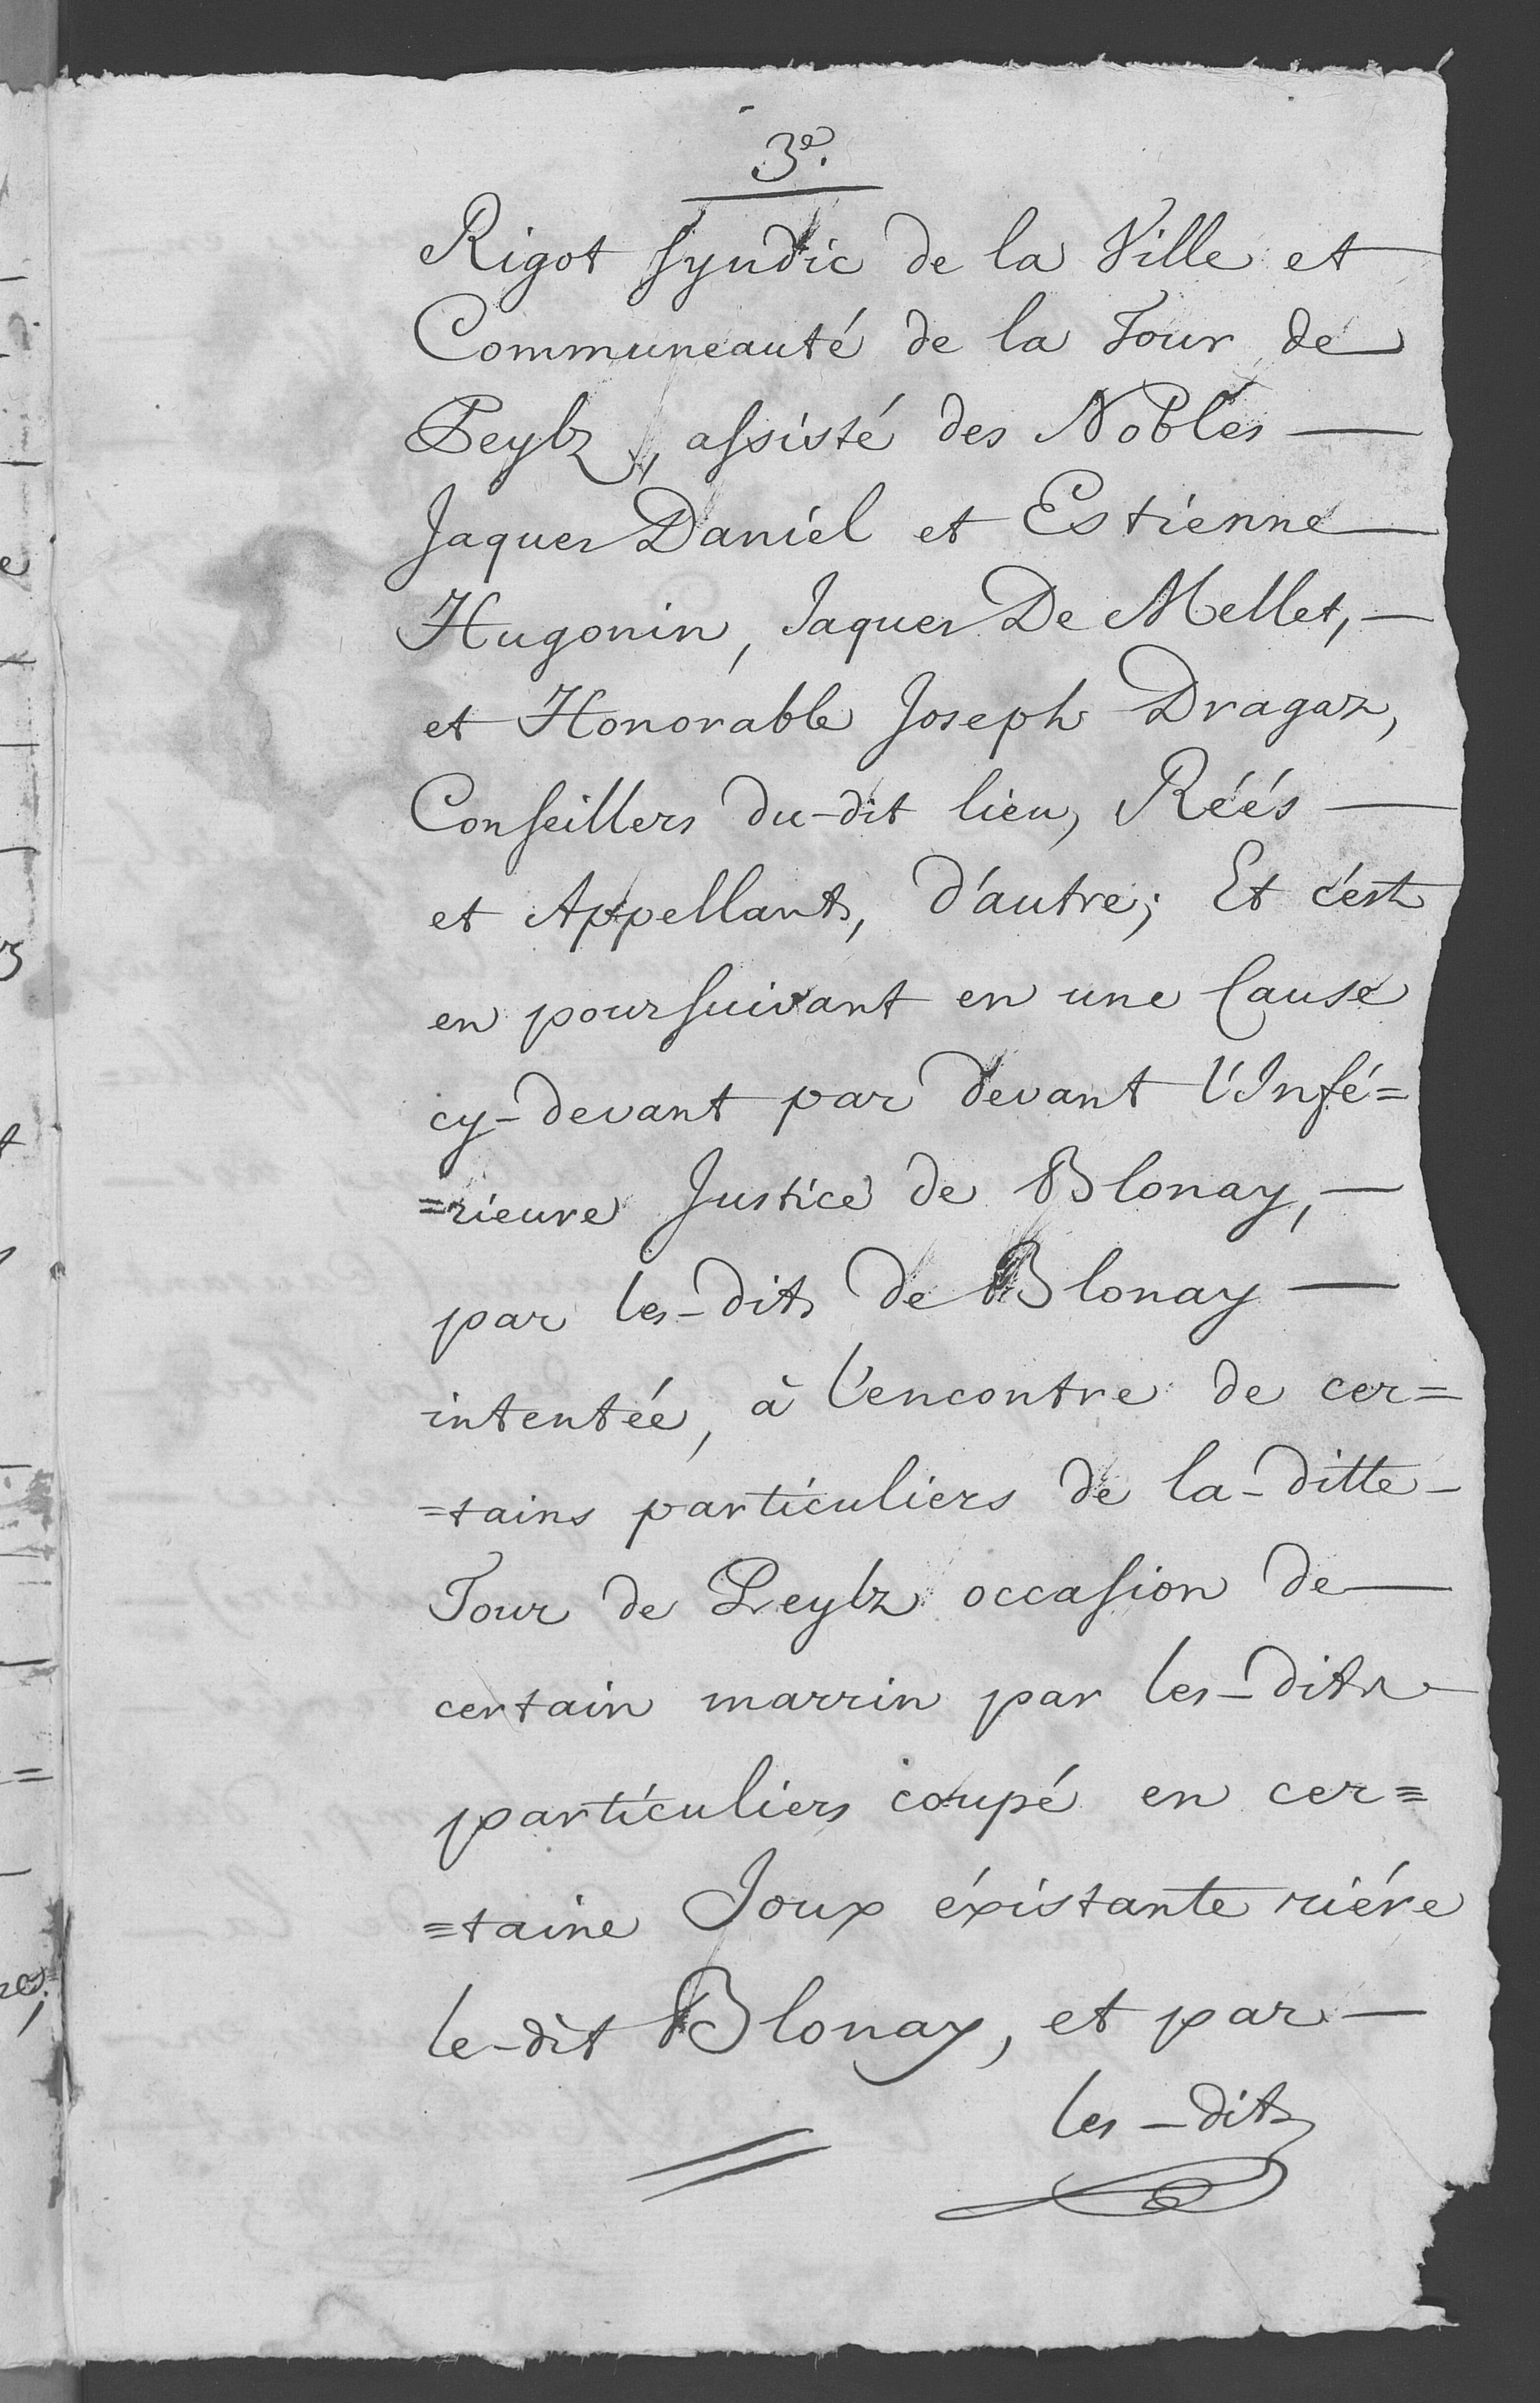 3e.
Rigot Syndic de la Ville et
Communeauté de la Tour de
Peylz, assisté des Nobles —
Jaques Daniel et Estienne —
Hugonin, Jaques De Mellet, —
et Honorable Joseph Dragaz,
Conseillers du-dit lieu, Réés —
et Appellants, d'autre; Et c'est
en poursuivant en une Cause
cy-devant par devant l'Infé=
=rieure Justice de Blonay, —
par les-dits de Blonay —
intentée, à l'encontre de cer=
=tains particuliers de la-ditte-
Tour de Peylz occasion de —
certain marrin par les-dits
particuliers coupé en cer=
=taine Joux éxistante riére
le-dit Blonay, et par —
les-dits